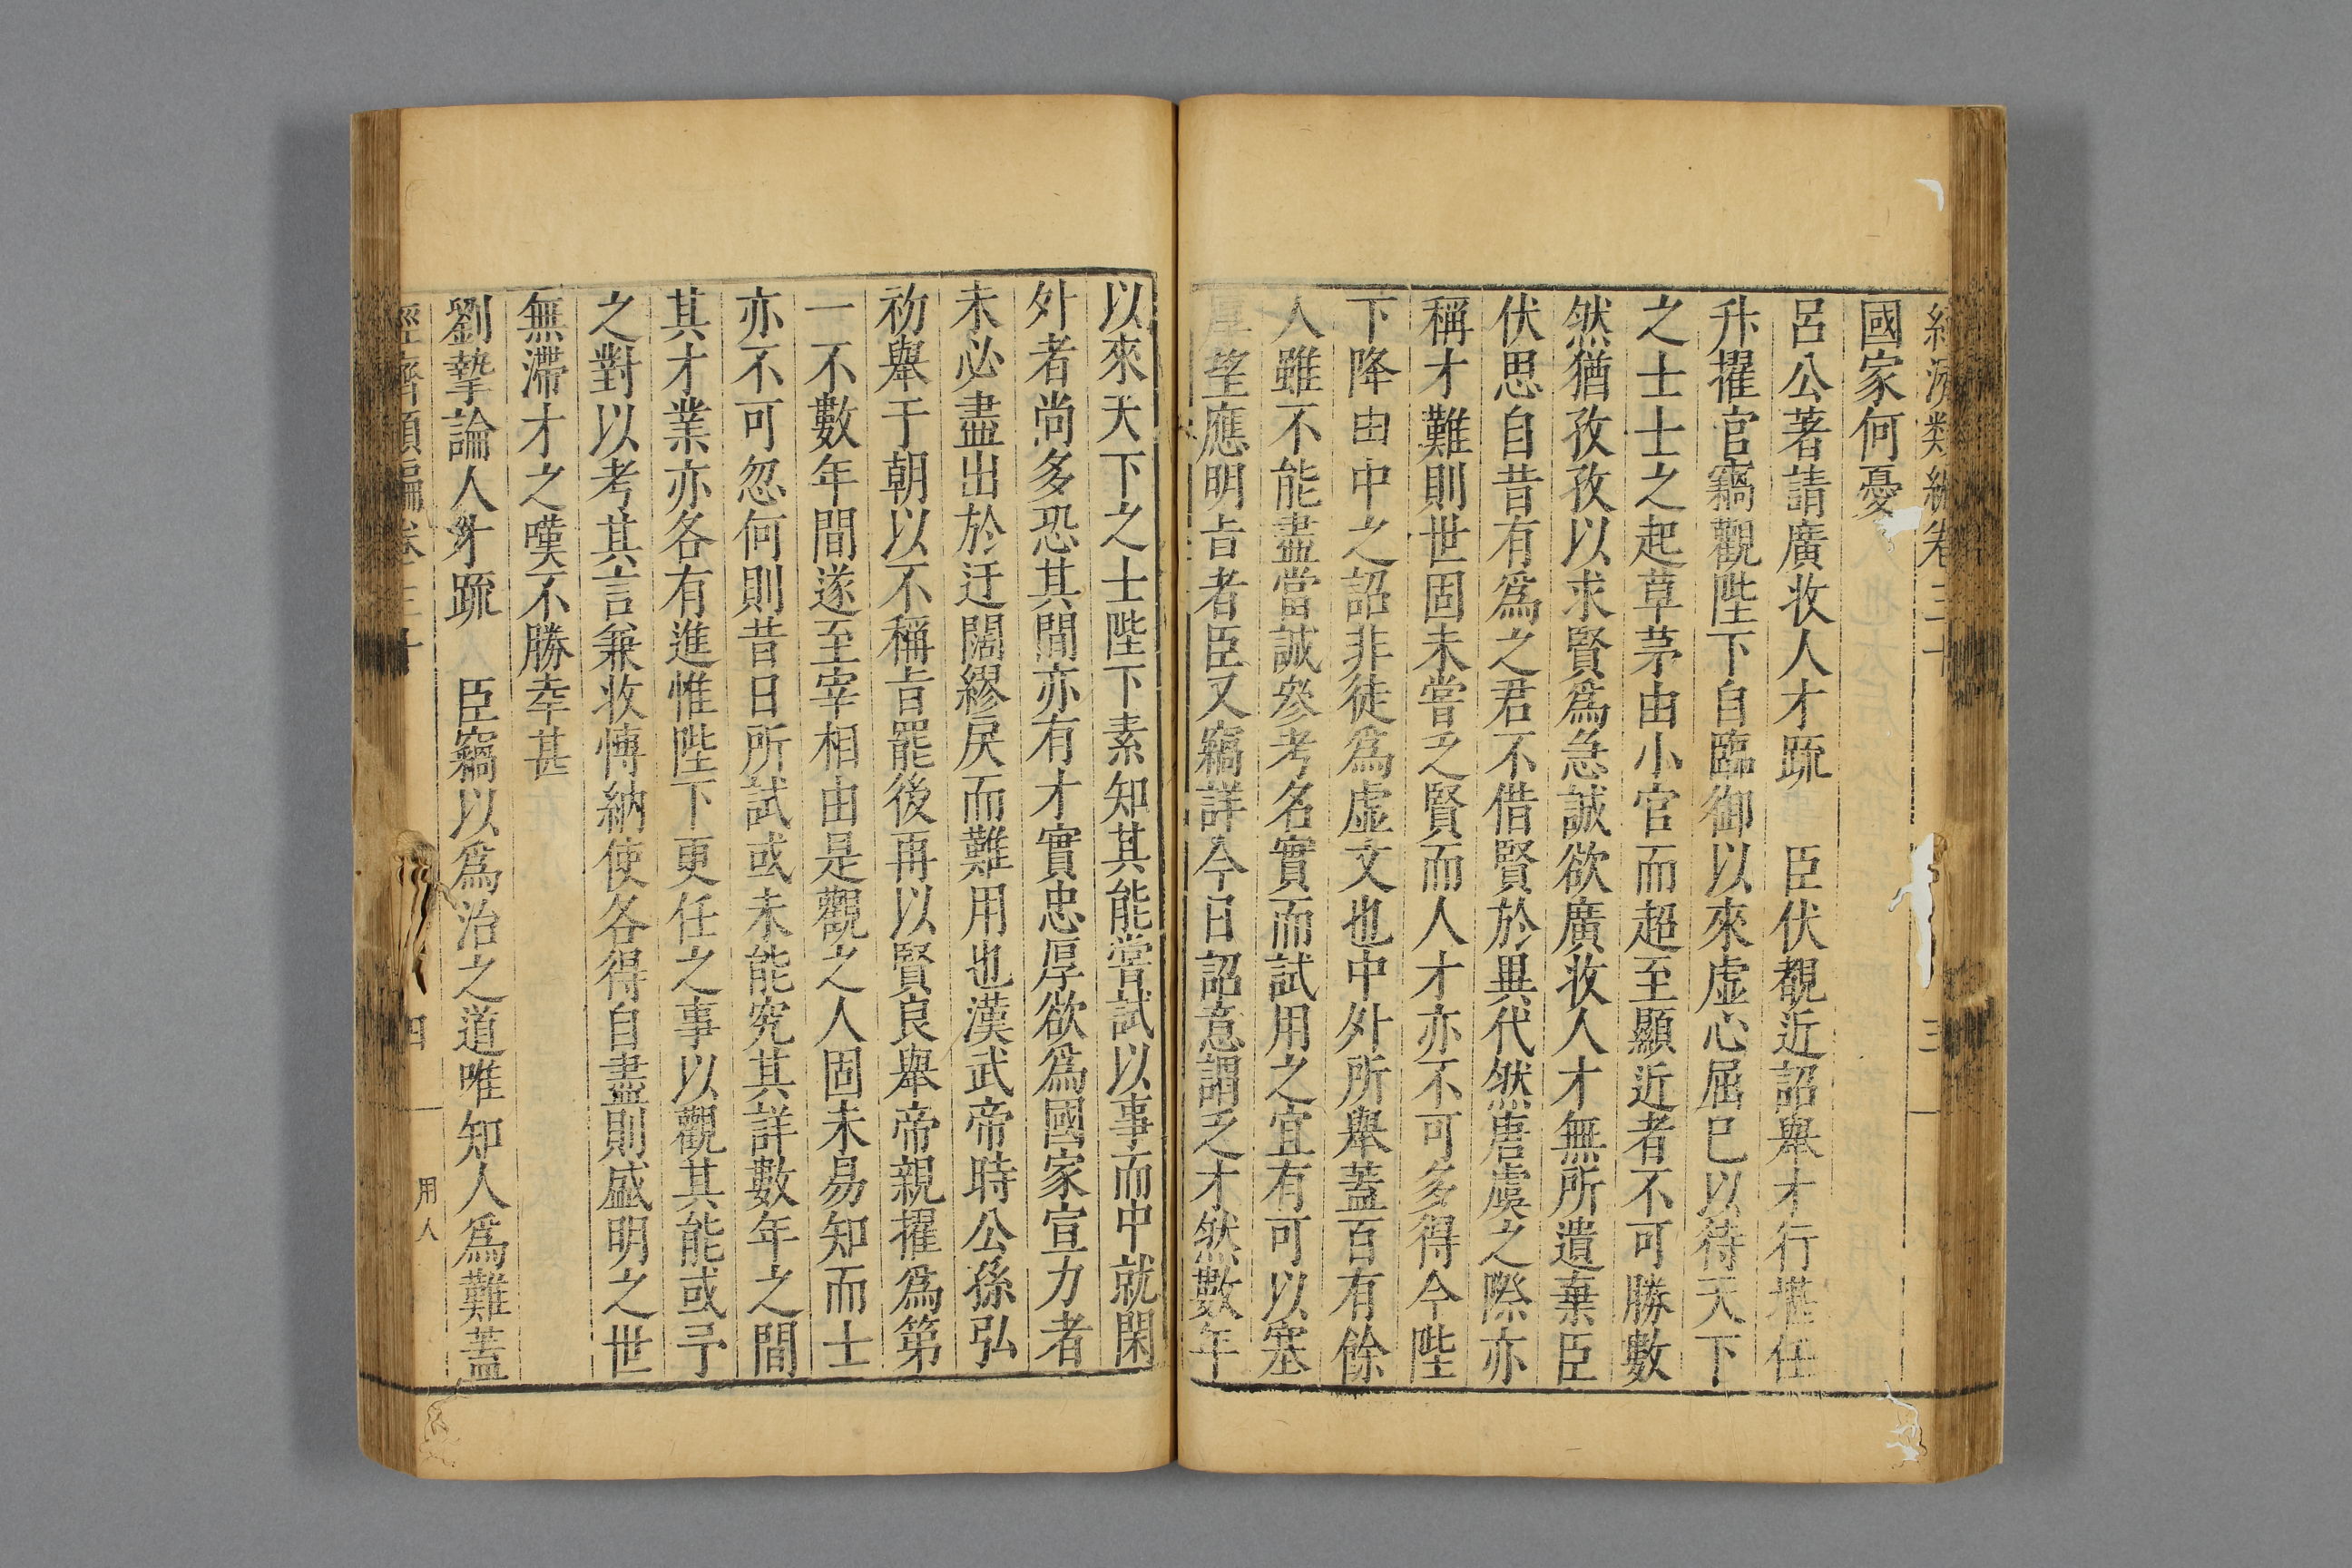 經濟類編卷三十
三
國家何憂
呂公著請廣收人才疏 臣伏覩近詔舉才行堪任
升擢官竊觀陛下自臨御以來虛心屈己以待天下
之士士之起草茅由小官而超至顯近者不可勝數
然猶孜孜以求賢爲急誠欲廣收人才無所遺棄臣
伏思自昔有爲之君不借賢於異代然唐虞之際亦
稱才難則世固未嘗乏賢而人才亦不可多得今陛
下降由中之詔非徒爲虛文也中外所舉蓋百有餘
人雖不能盡當誠參考名實而試用之宜有可以塞
厚望應明旨者臣又竊詳今日詔意謂乏才然數年
以來天下之士陛下素知其能嘗試以事而中就閑
外者尚多恐其間亦有才實忠厚欲爲國家宣力者
未必盡出於迂闊繆戾而難用也漢武帝時公孫弘
初舉于朝以不稱旨罷後再以賢良舉帝親擢爲第
一不數年間遂至宰相由是觀之人固未易知而士
亦不可忽何則昔日所試或未能究其詳數年之間
其才業亦各有進惟陛下更任之事以觀其能或予
之對以考其言兼收博納使各得自盡則盛明之世
無滯才之嘆不勝幸甚
劉摯論人才疏 臣竊以爲治之道唯知人爲難蓋
經濟類編卷三十
四
用人